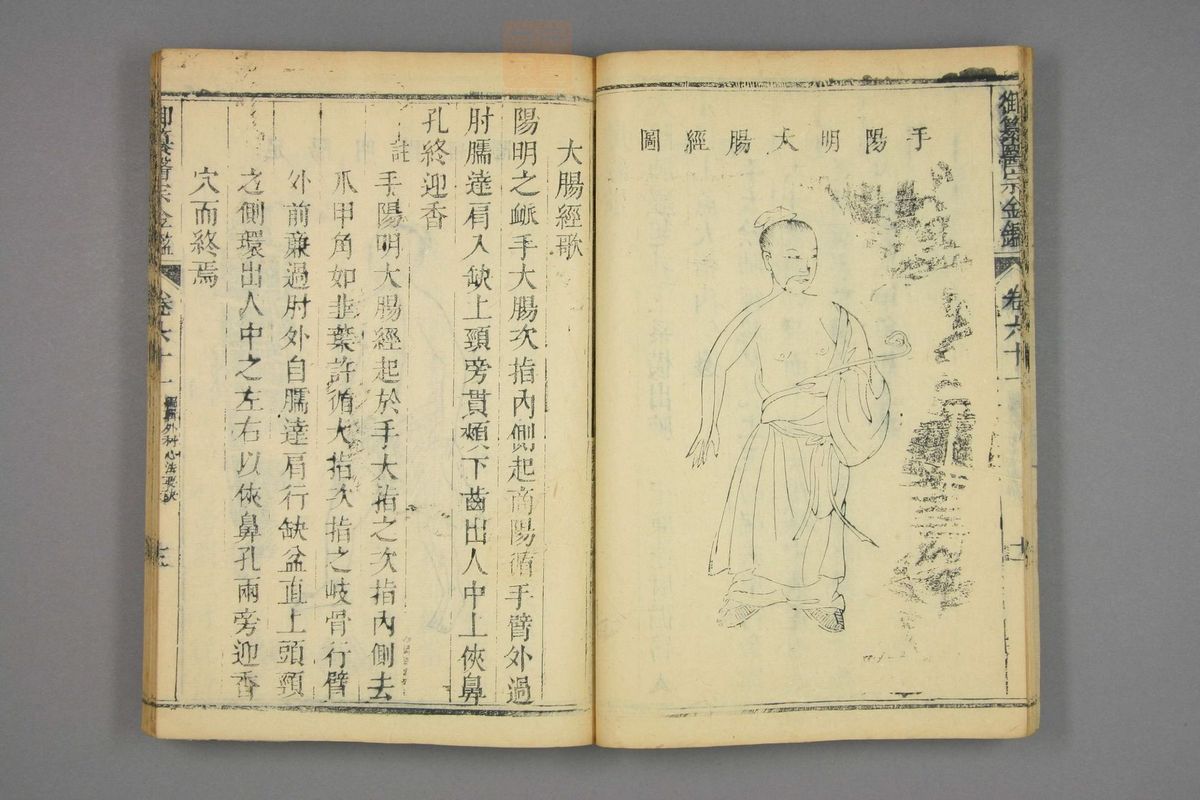 御纂醫宗金鑑
卷六十一
手陽明大腸經圖
大腸經歌
陽明之脈手大腸次指內側起商陽循手臂外過
肘臑達肩入缺上頸旁貫頰下齒出人中上俠鼻
孔終迎香
註
手陽明大腸經起於手大指之次指內側去
爪甲角如韭葉許循大指次指之岐骨行臂
外前廉過肘外自臑達肩行缺盆直上頭頸
之側環出人中之左右以俠鼻孔兩旁迎香
穴而終焉
御纂醫宗金鑑
卷六十一
外科心法要訣